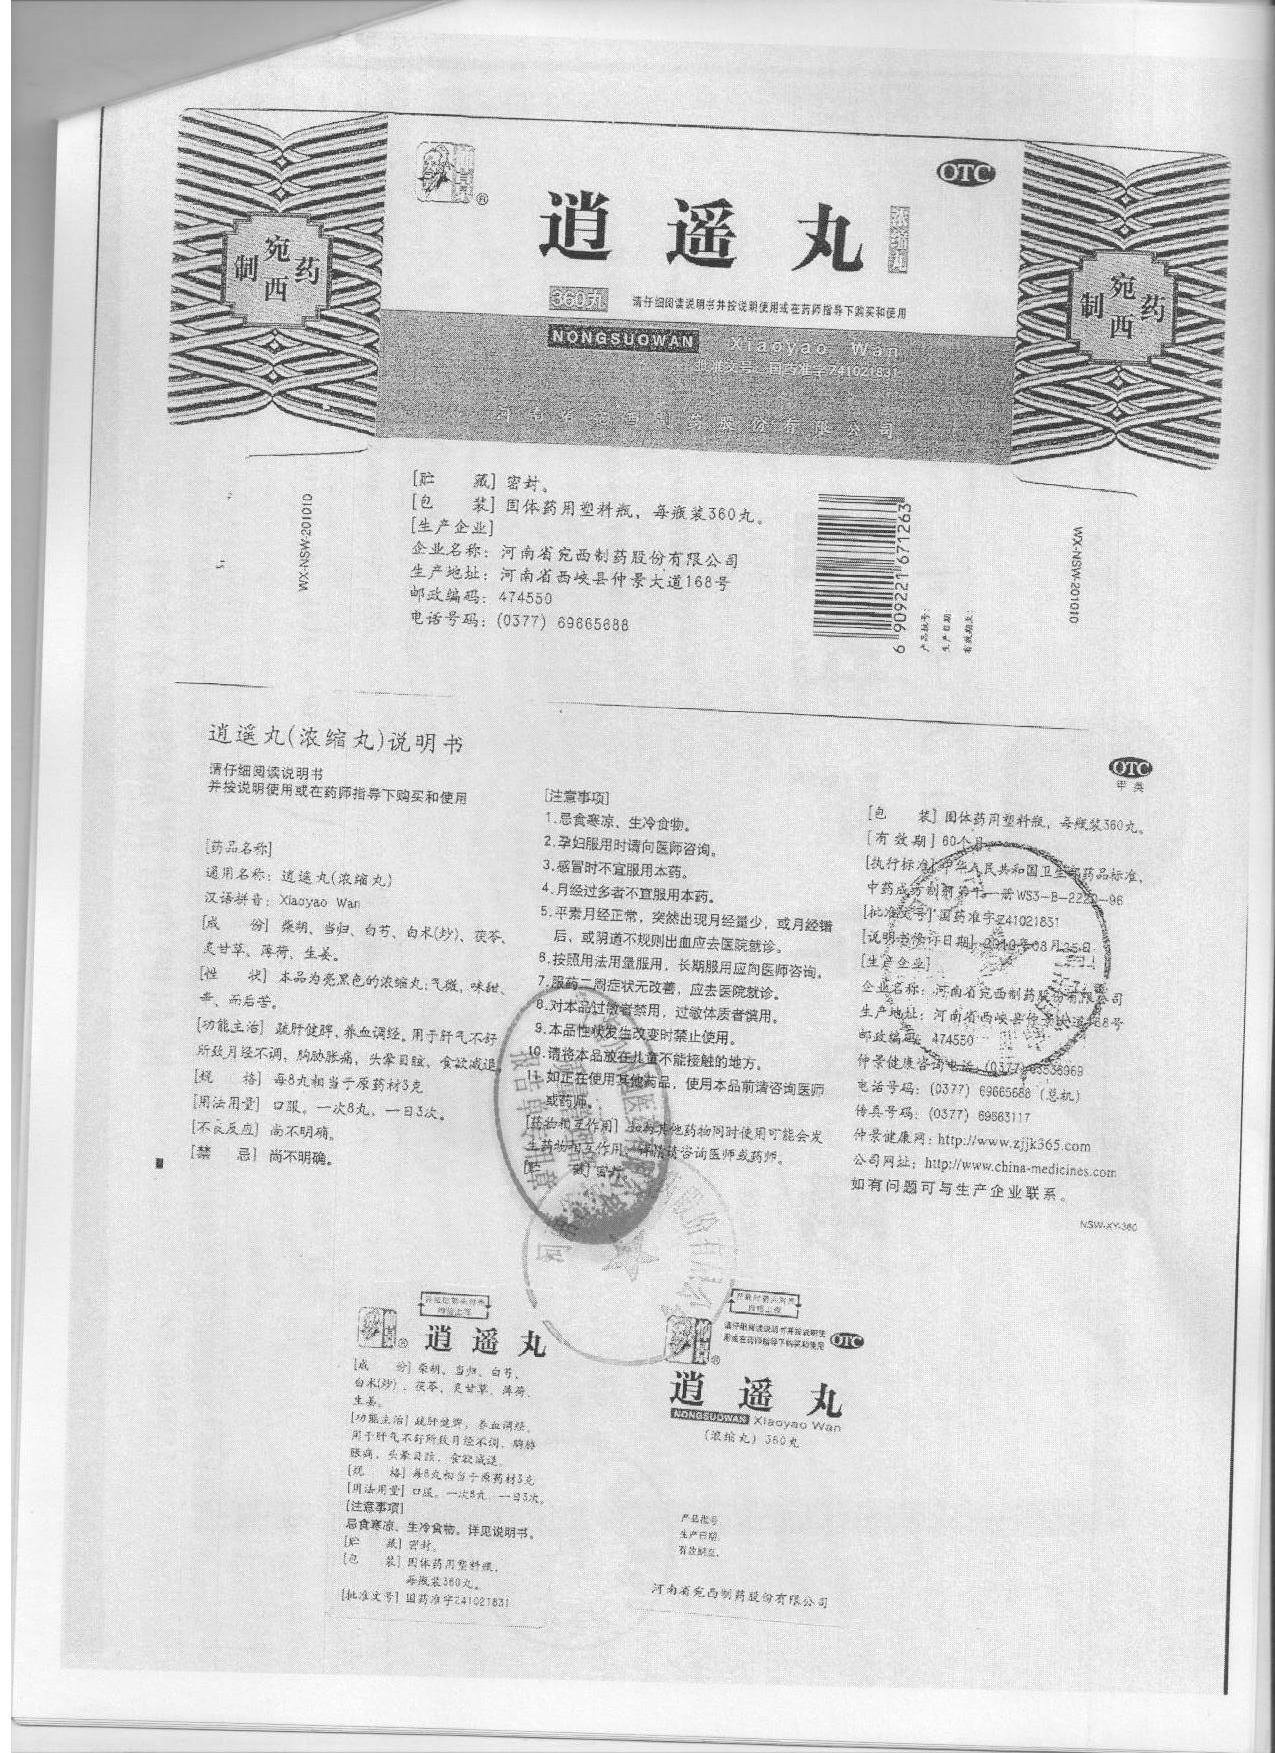 仲景
®
OTC
逍遥丸
浓缩丸
360丸
请仔细阅读说明书并按说明使用或在药师指导下购买和使用
NONGSUOWAN Xiaoyao Wan
批准文号 国药准字Z41021831
河南省宛西制药股份有限公司
宛西制药
宛西制药
[贮 藏] 密封。
[包 装] 固体药用塑料瓶，每瓶装360丸。
[生产企业]
企业名称：河南省宛西制药股份有限公司
生产地址：河南省西峡县仲景大道168号
邮政编码：474550
电话号码：(0377) 69665688
WX-NSW-201010
6 909221 671263
产品批号：
生产日期：
有效期至：
WX-NSW-201010
逍遥丸(浓缩丸)说明书
请仔细阅读说明书
并按说明使用或在药师指导下购买和使用
[药品名称]
通用名称：逍遥丸(浓缩丸)
汉语拼音：Xiaoyao Wan
[成 份] 柴胡、当归、白芍、白术(炒)、茯苓、
炙甘草、薄荷、生姜。
[性 状] 本品为亮黑色的浓缩丸；气微，味甜、
辛、而后苦。
[功能主治] 疏肝健脾，养血调经。用于肝气不舒
所致月经不调，胸胁胀痛，头晕目眩，食欲减退。
[规 格] 每8丸相当于原药材3克
[用法用量] 口服。一次8丸，一日3次。
[不良反应] 尚不明确。
[禁 忌] 尚不明确。
[注意事项]
1.忌食寒凉、生冷食物。
2.孕妇服用时请向医师咨询。
3.感冒时不宜服用本药。
4.月经过多者不宜服用本药。
5.平素月经正常，突然出现月经量少，或月经错
后，或阴道不规则出血应去医院就诊。
6.按照用法用量服用，长期服用应向医师咨询。
7.服药二周症状无改善，应去医院就诊。
8.对本品过敏者禁用，过敏体质者慎用。
9.本品性状发生改变时禁止使用。
10.请将本品放在儿童不能接触的地方。
11.如正在使用其他药品，使用本品前请咨询医师
或药师。
[药物相互作用] 如与其他药物同时使用可能会发
生药物相互作用，详情请咨询医师或药师。
[贮 藏] 密封。
OTC
甲类
[包 装] 固体药用塑料瓶，每瓶装360丸。
[有效期] 60个月
[执行标准] 中华人民共和国卫生部药品标准，
中药成方制剂第十一册 WS3-B-2222-96
[批准文号] 国药准字Z41021831
[说明书修订日期] 2010年08月25日
[生产企业]
企业名称：河南省宛西制药股份有限公司
生产地址：河南省西峡县仲景大道168号
邮政编码：474550
仲景健康咨询电话：(0377) 63536969
电话号码：(0377) 69665688 (总机)
传真号码：(0377) 69663117
仲景健康网：http://www.zjjk365.com
公司网址：http://www.china-medicines.com
如有问题可与生产企业联系。
NSW-XY-360
仲景
®
逍遥丸
[成 份] 柴胡、当归、白芍、
白术(炒)、茯苓、炙甘草、薄荷、
生姜。
[功能主治] 疏肝健脾，养血调经。
用于肝气不舒所致月经不调，胸胁
胀痛，头晕目眩，食欲减退。
[规 格] 每8丸相当于原药材3克
[用法用量] 口服。一次8丸，一日3次。
[注意事项]
忌食寒凉、生冷食物。详见说明书。
[贮 藏] 密封。
[包 装] 固体药用塑料瓶，
每瓶装360丸。
[批准文号] 国药准字Z41021831
仲景
®
请仔细阅读说明书并按说明使
用或在药师指导下购买和使用
OTC
逍遥丸
NONGSUOWAN Xiaoyao Wan
(浓缩丸) 360丸
产品批号
生产日期
有效期至
河南省宛西制药股份有限公司